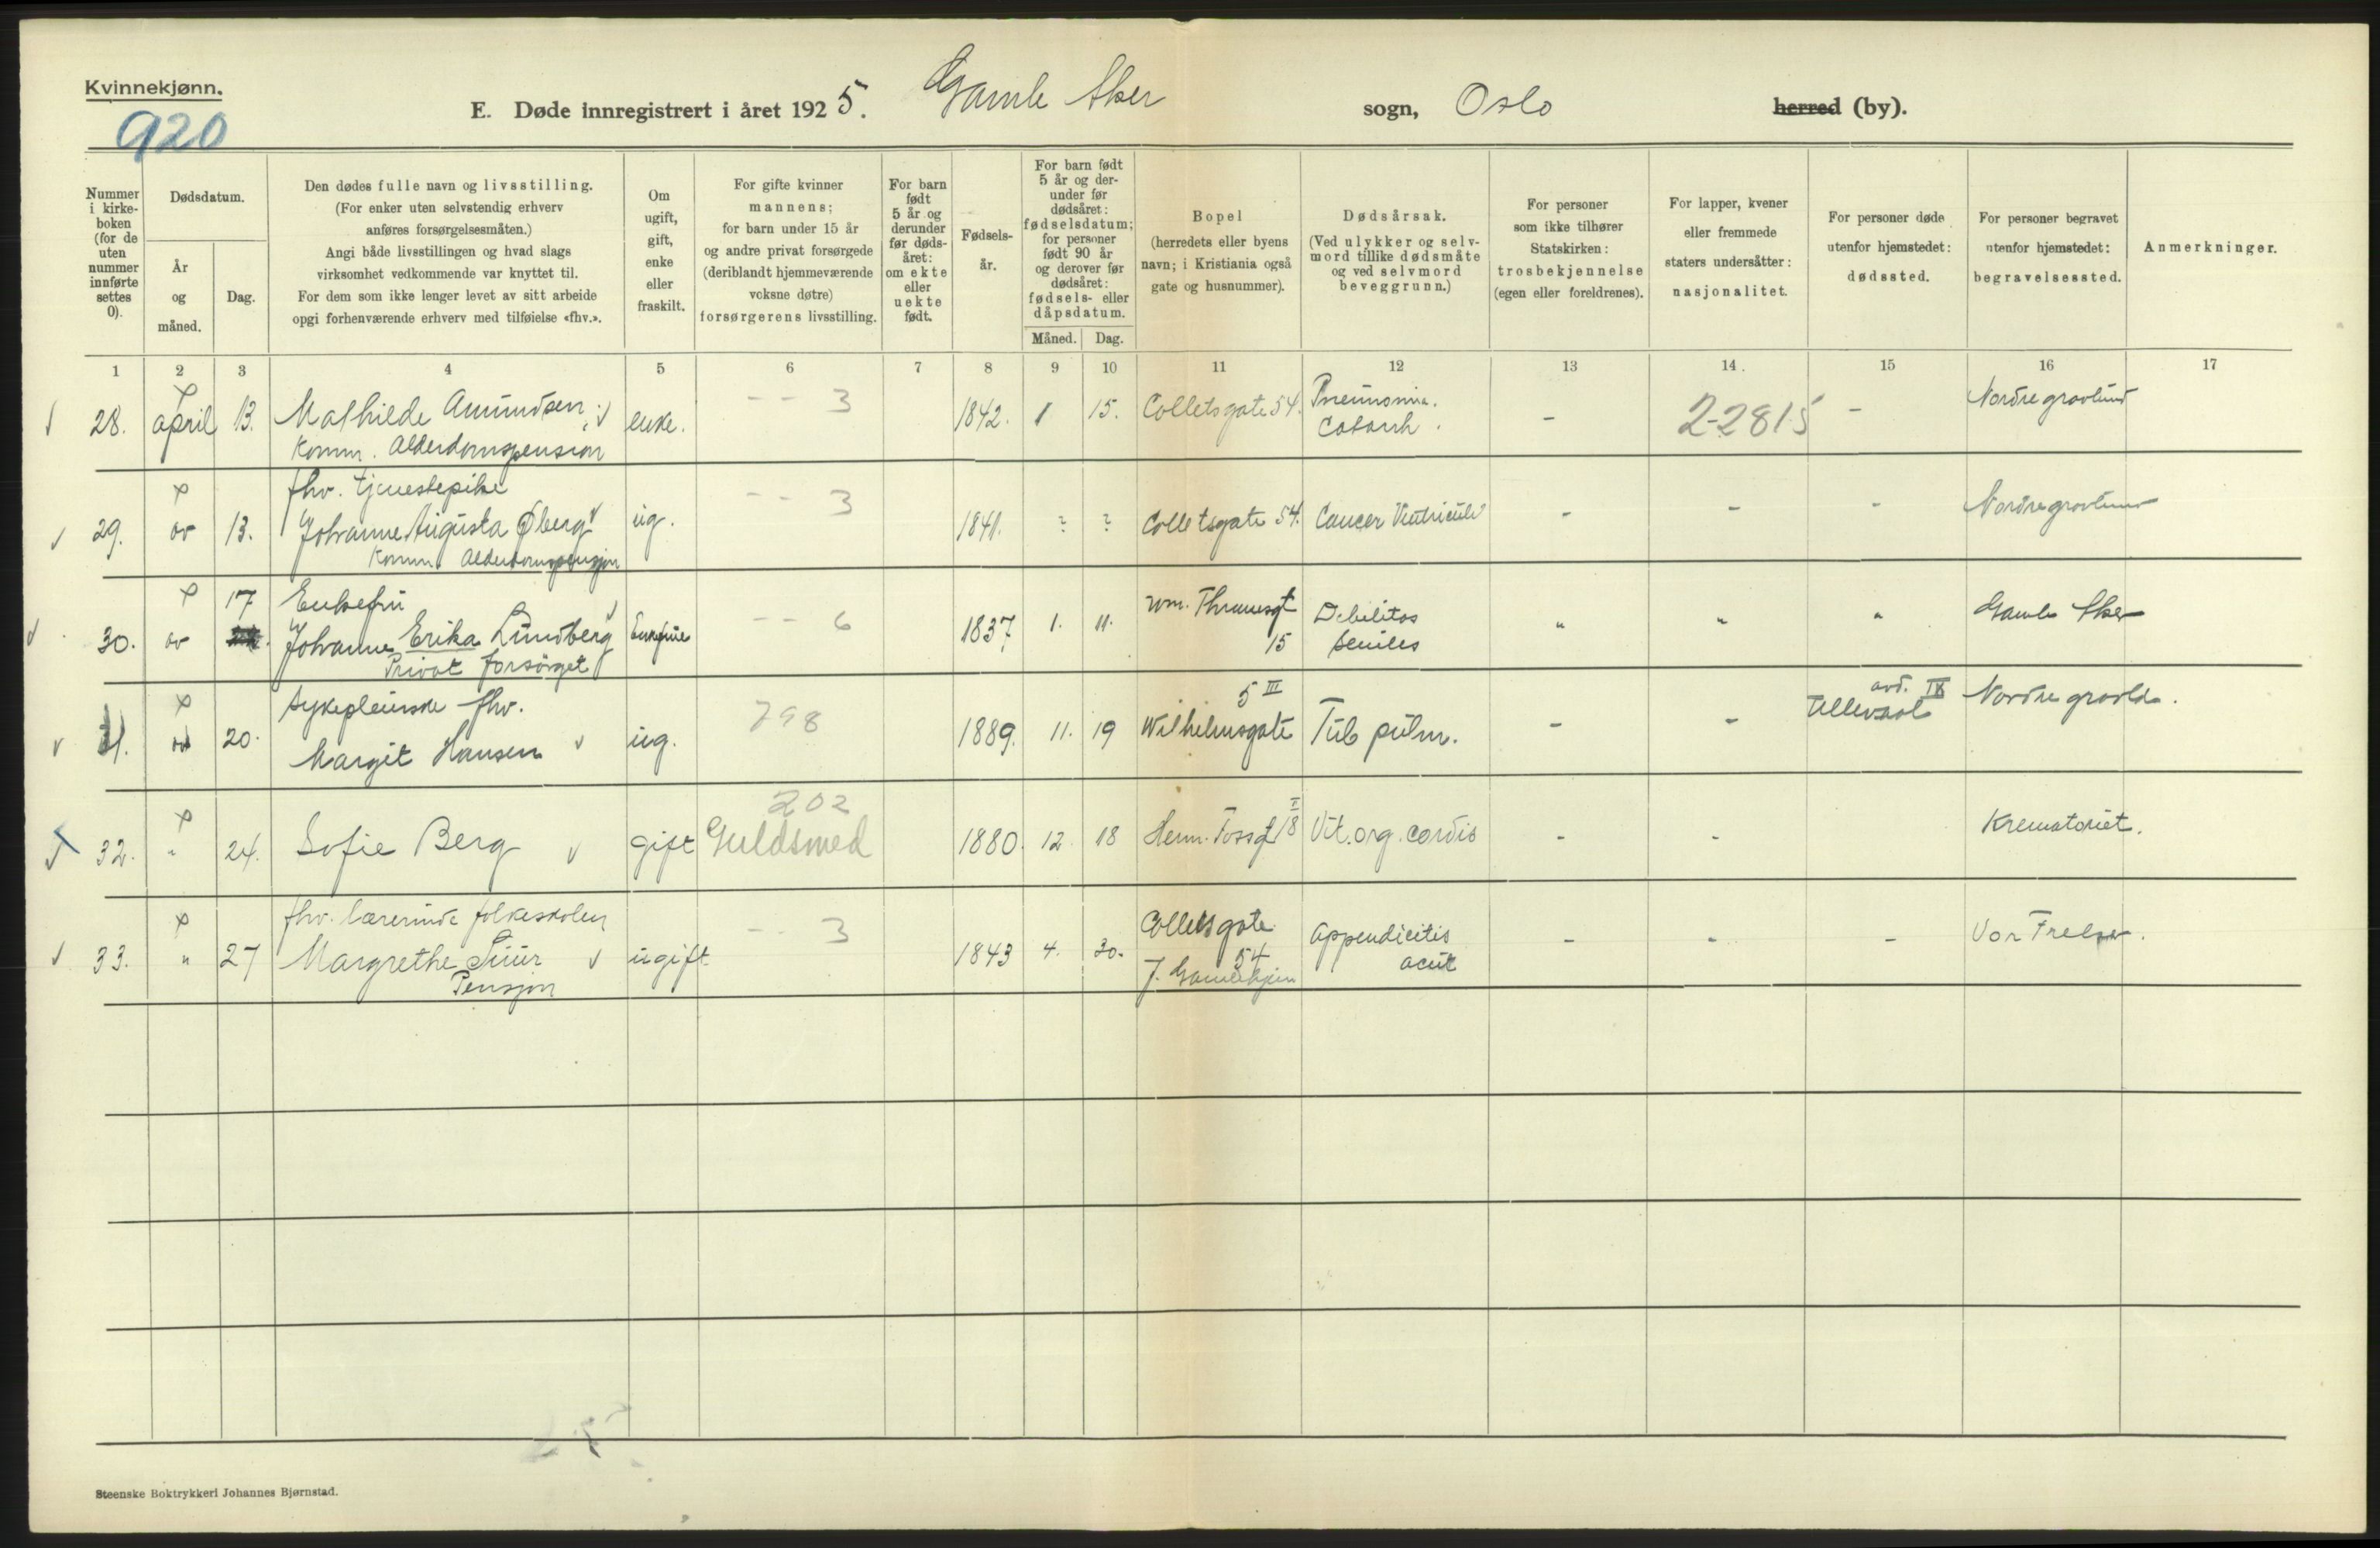 Kvinnekjønn.
920
E. Døde innregistrert i året 1925. Gamle Aker sogn, Oslo herred (by).
Nummer i kirke-boken (for de uten nummer innførte settes 0).
Dødsdatum.
År og måned.
Dag.
Den dødes fulle navn og livsstilling.
(For enker uten selvstendig erhverv
anføres forsørgelsesmåten.)
Angi både livsstillingen og hvad slags
virksomhet vedkommende var knyttet til.
For dem som ikke lenger levet av sitt arbeide
opgi forhenværende erhverv med tilføielse «fhv.».
Om ugift, gift, enke eller fraskilt.
For gifte kvinner
mannens;
for barn under 15 år
og andre privat forsørgede
(deriblandt hjemmeværende
voksne døtre)
forsørgerens livsstilling.
For barn født 5 år og derunder før døds-året: om ekte eller uekte født.
Fødsels-år.
For barn født 5 år og der-under før dødsåret: fødselsdatum; for personer født 90 år og derover før dødsåret: fødsels- eller dåpsdatum.
Måned. Dag.
Bopel
(herredets eller byens
navn; i Kristiania også
gate og husnummer).
Dødsårsak.
(Ved ulykker og selv-
mord tillike dødsmåte
og ved selvmord
beveggrunn.)
For personer
som ikke tilhører
Statskirken:
trosbekjennelse
(egen eller foreldrenes).
For lapper, kvener
eller fremmede
staters undersåtter:
nasjonalitet.
For personer døde
utenfor hjemstedet:
dødssted.
For personer begravet
utenfor hjemstedet:
begravelsessted.
Anmerkninger.
1 2 3 4 5 6 7 8 9 10 11 12 13 14. 15 16 17
28. april 13. Mathilde Amundsen enke. - - 3 1842. 1 15. Colletsgate 54. Pneumonia. - 2-2815 - Nordre gravlund
Komm. Alderdomspension Catarrh.
fhv. tjenestepike
29. " 13. Johanne Augusta Øberg ug. - - 3 1841. ? ? Colletsgate 54. Cancer Ventriculi - - - Nordre gravlund
Komm. Alderdomspensjon
17 Enkefru
30. " Johanne Erika Lundberg Enkefrue - - 6 1837 1. 11. Wm. Thranesgt 15 Debilitas seniles " " " Gamle Aker
Privat forsørget
sykepleierske fhv. 5 III
31. " 20. Margit Hansen ug. 798 1889. 11. 19 Wilhelmsgate Tub pulm. - - Ullevaal avd. IX Nordre gravld.
202
32. " 24. Sofie Berg gift Guldsmed 1880. 12. 18 Herm. Fossgt 18 I Vit. org. cordis - - Krematoriet.
fhv. lærerinde folkeskolen
33. " 27 Margrethe Tuur ugift - - 3 1843 4. 30. Colletsgate 54 Appendicitis acut - - - Vor Frelser.
Pensjon
Steenske Boktrykkeri Johannes Bjørnstad.